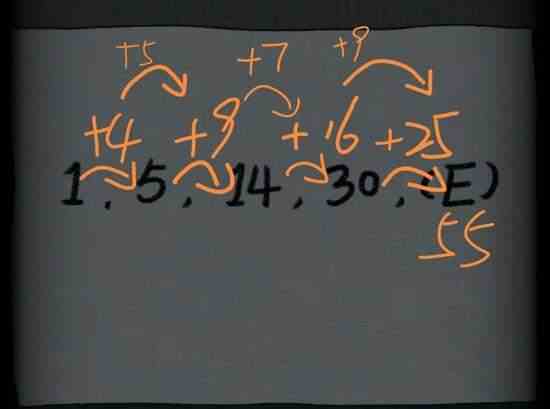 +5 +7 +9
+4 +9 +16 +25
1, 5, 14, 30, (E)
55